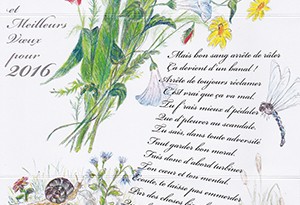 et
Meilleurs
Vœux
pour
2016
Mais bon sang arrête de râler
Ça devient d'un banal !
Arrête de toujours réclamer
C'est vrai que ça va mal.
Tu frais mieux d'pédaler
Que d'pleurer au scandale.
Tu sais, dans toute adversité
Faut garder bon moral.
Fais donc d'abord turbiner
Ton cœur et ton mental,
écoute, te laisse pas emmerder
Par des choses